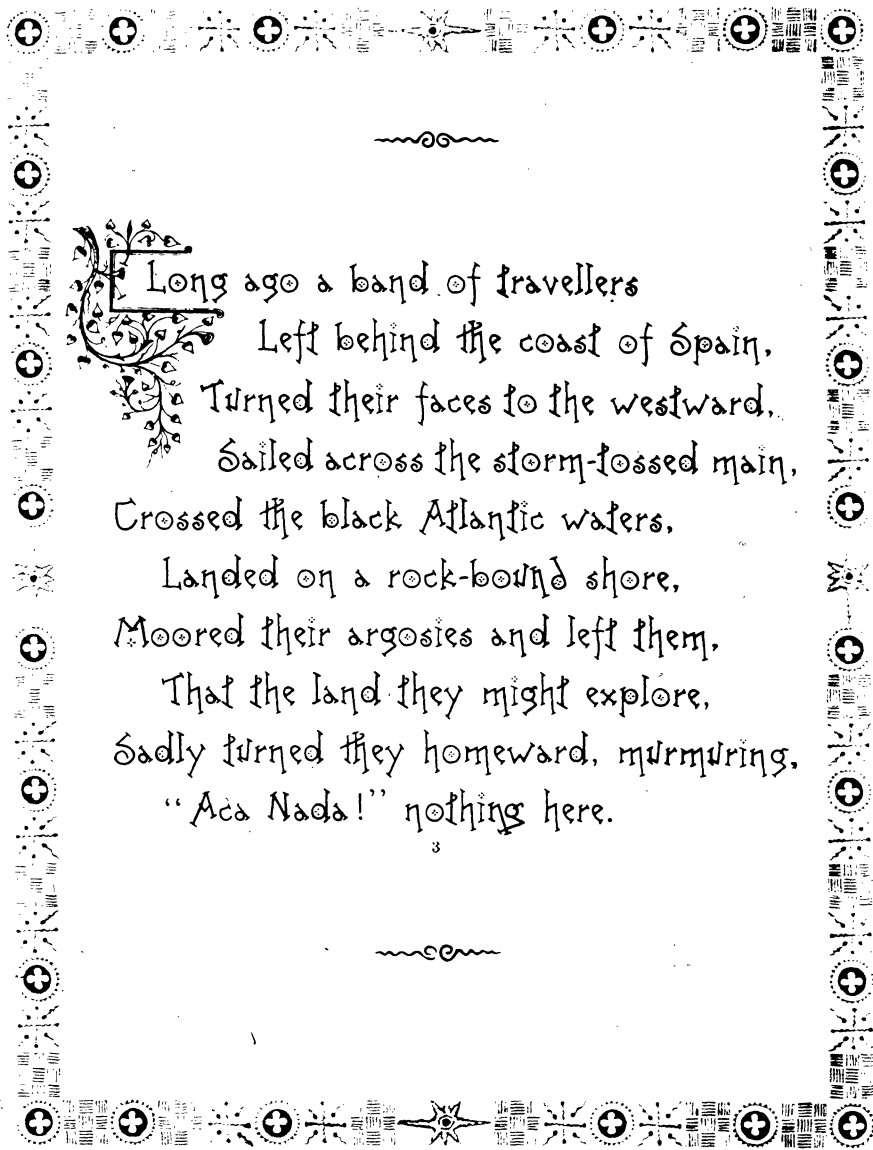 Long ago a band of travellers
Left behind the coast of Spain,
Turned their faces to the westward,
Sailed across the storm-tossed main,
Crossed the black Atlantic waters,
Landed on a rock-bound shore,
Moored their argosies and left them,
That the land they might explore,
Sadly turned they homeward, murmuring,
“Aca Nada!” nothing here.
3